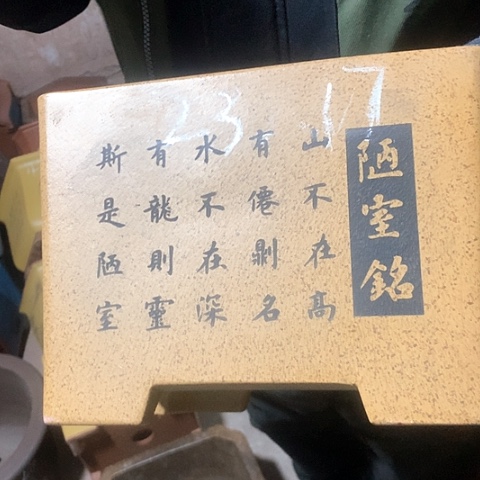 23 17
陋室銘
山不在高
有僊則名
水不在深
有龍則靈
斯是陋室